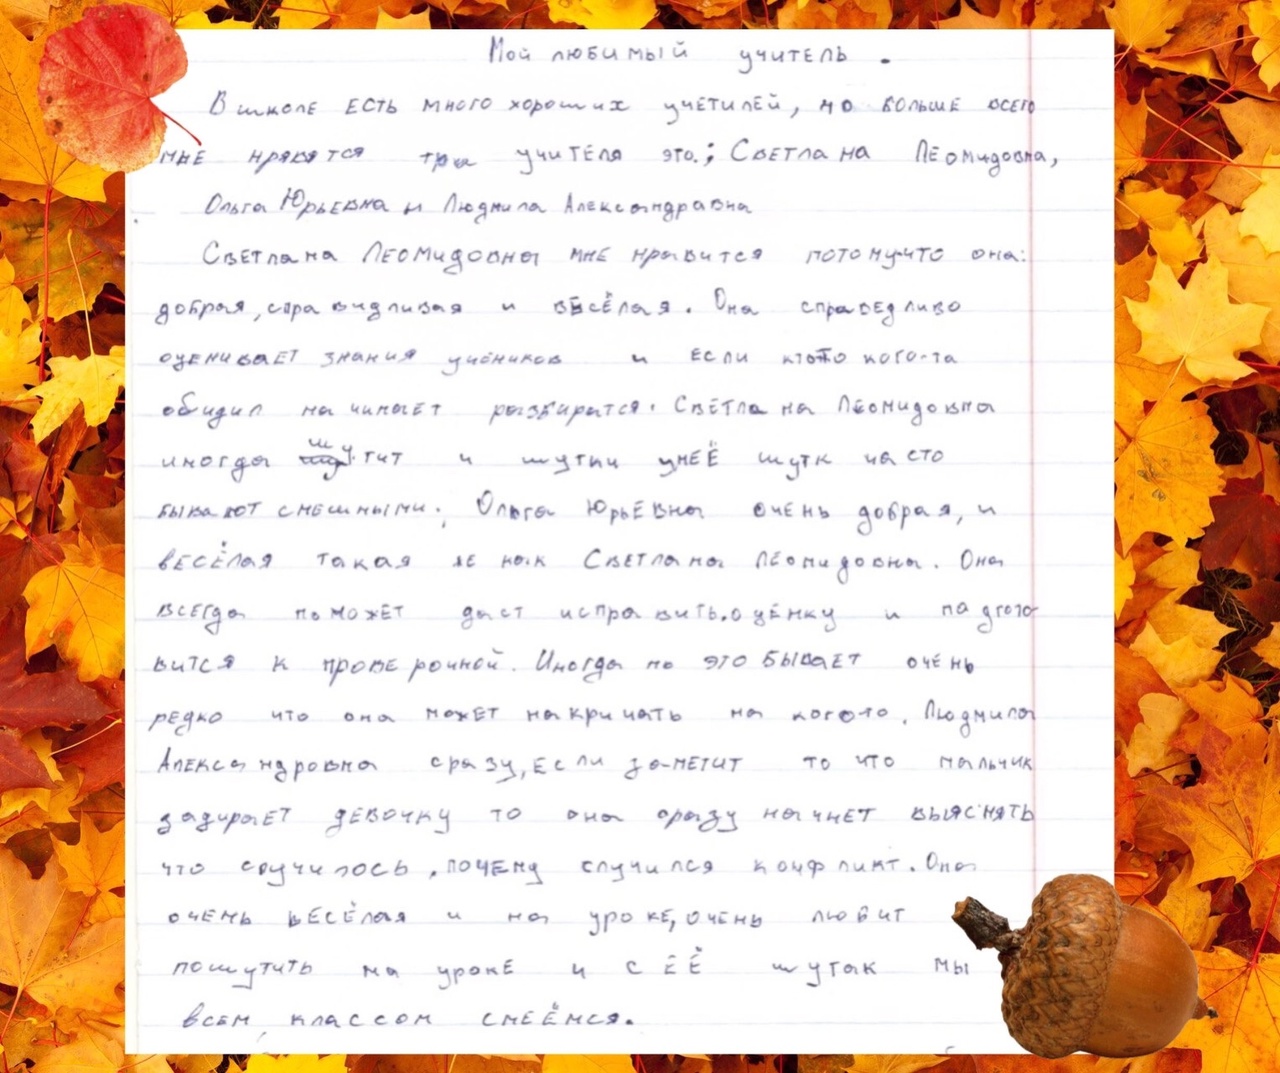 Мой любимый учитель.
В школе есть много хороших учетилей, но больше всего
мне нравятся три учителя это: Светлана Леомидовна,
Ольга Юрьевна и Людмила Александравна
Светлана Леомидовна мне нравится потомучто она:
добрая, справидливая и весёлая. Она справедливо
оценивает знания учеников и если ктото кого-та
обидил начинает разбиратся. Светлана Леомидовна
иногда шутит и шутки унеё шутк часто
бывают смешными. Ольга Юрьевна очень добрая, и
весёлая такая же как Светлана Леомидовна. Она
всегда поможет даст исправить оценку и падгото
вится к проверочной. Иногда но это бывает очень
редко что она может накричать на когото. Людмила
Александровна сразу, если заметит то что мальчик
задирает девочку то она сразу начнет выяснять
что случилось, почему случился конфликт. Она
очень весёлая и на уроке, очень любит
пошутить на уроке и с её шутак мы
всем классом смеёмся.